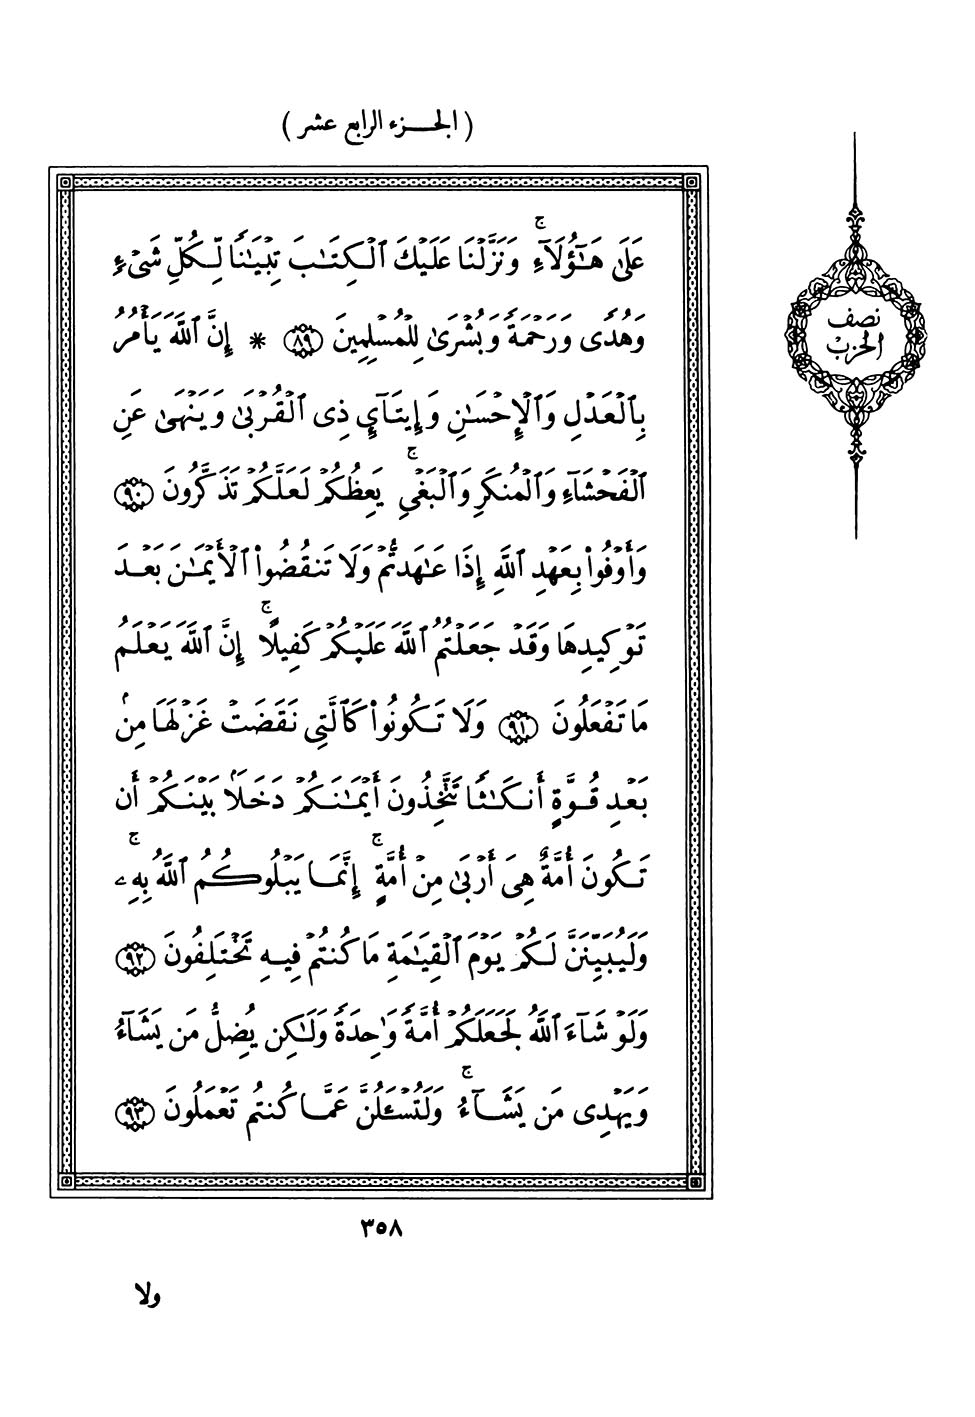 (الجـــزء الرابع عشر)
عَلَىٰ هَـٰٓؤُلَآءِۚ وَنَزَّلْنَا عَلَيْكَ ٱلْكِتَـٰبَ تِبْيَـٰنًا لِّكُلِّ شَىْءٍ
وَهُدًى وَرَحْمَةً وَبُشْرَىٰ لِلْمُسْلِمِينَ ٨٩ * إِنَّ ٱللَّهَ يَأْمُرُ
بِٱلْعَدْلِ وَٱلْإِحْسَـٰنِ وَإِيتَآىِٕ ذِى ٱلْقُرْبَىٰ وَيَنْهَىٰ عَنِ
ٱلْفَحْشَآءِ وَٱلْمُنكَرِ وَٱلْبَغْىِۚ يَعِظُكُمْ لَعَلَّكُمْ تَذَكَّرُونَ ٩٠
وَأَوْفُوا۟ بِعَهْدِ ٱللَّهِ إِذَا عَـٰهَدتُّمْ وَلَا تَنقُضُوا۟ ٱلْأَيْمَـٰنَ بَعْدَ
تَوْكِيدِهَا وَقَدْ جَعَلْتُمُ ٱللَّهَ عَلَيْكُمْ كَفِيلًاۚ إِنَّ ٱللَّهَ يَعْلَمُ
مَا تَفْعَلُونَ ٩١ وَلَا تَكُونُوا۟ كَٱلَّتِى نَقَضَتْ غَزْلَهَا مِنۢ
بَعْدِ قُوَّةٍ أَنكَـٰثًا تَتَّخِذُونَ أَيْمَـٰنَكُمْ دَخَلَۢا بَيْنَكُمْ أَن
تَكُونَ أُمَّةٌ هِىَ أَرْبَىٰ مِنْ أُمَّةٍۚ إِنَّمَا يَبْلُوكُمُ ٱللَّهُ بِهِۦۚ
وَلَيُبَيِّنَنَّ لَكُمْ يَوْمَ ٱلْقِيَـٰمَةِ مَا كُنتُمْ فِيهِ تَخْتَلِفُونَ ٩٢
وَلَوْ شَآءَ ٱللَّهُ لَجَعَلَكُمْ أُمَّةً وَٰحِدَةً وَلَـٰكِن يُضِلُّ مَن يَشَآءُ
وَيَهْدِى مَن يَشَآءُۚ وَلَتُسْـَٔلُنَّ عَمَّا كُنتُمْ تَعْمَلُونَ ٩٣
نصف
الحزب
٣٥٨
ولا